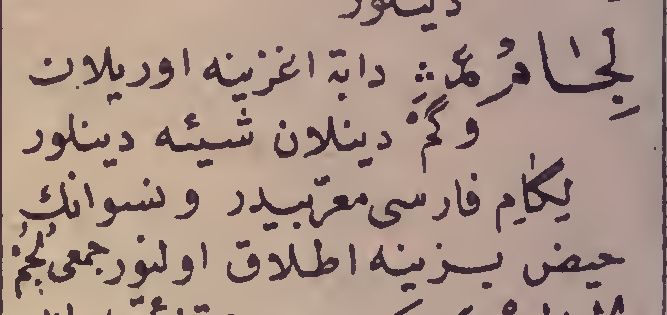 دينلور
لِجَامٌ دابة اغزينه اوريلان
وكَمْ دينلان شيئه دينلور
لِكام فارسى معرّبيدر ونسوانك
حيض بزينه اطلاق اولنور جمعى لُجُمْ